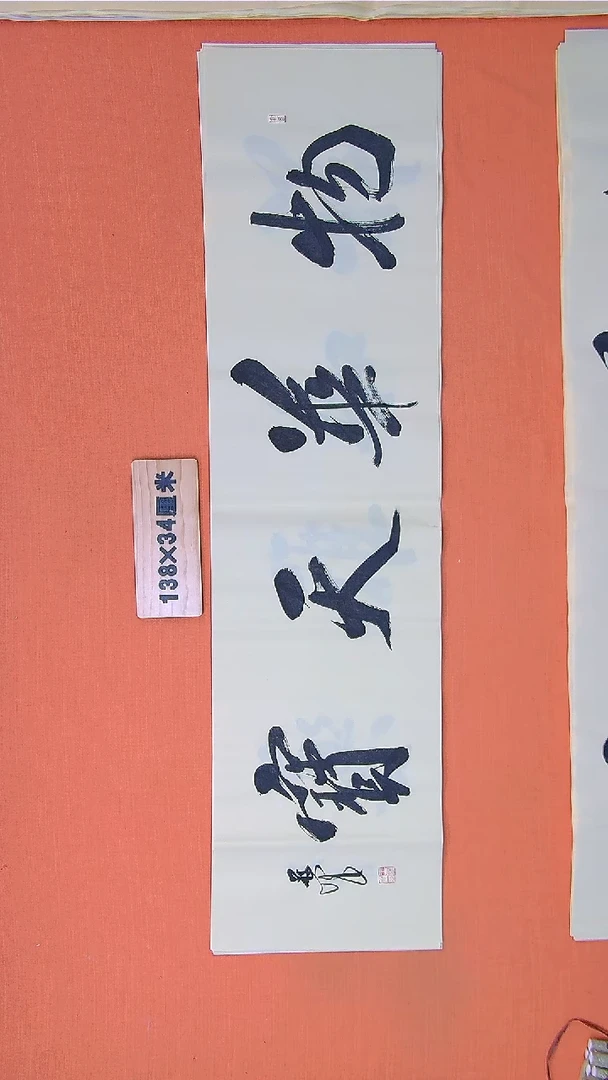 物華天寶
138×34厘米